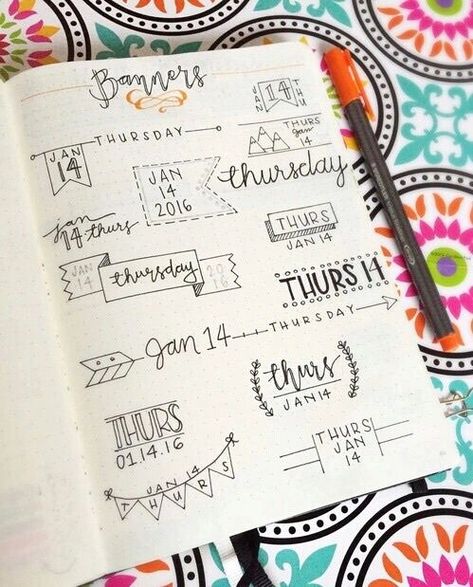 Banners
JAN 14 THU
THURSDAY
JAN
14
THURS
Jan
14
JAN
14
2016
thursday
jan
14 thurs
THURS
JAN 14
JAN
14
thursday
20
16
THURS 14
JAN
Jan 14
THURSDAY
thurs
JAN 14
THURS
01.14.16
THURS
JAN
14
JAN 14
THURS